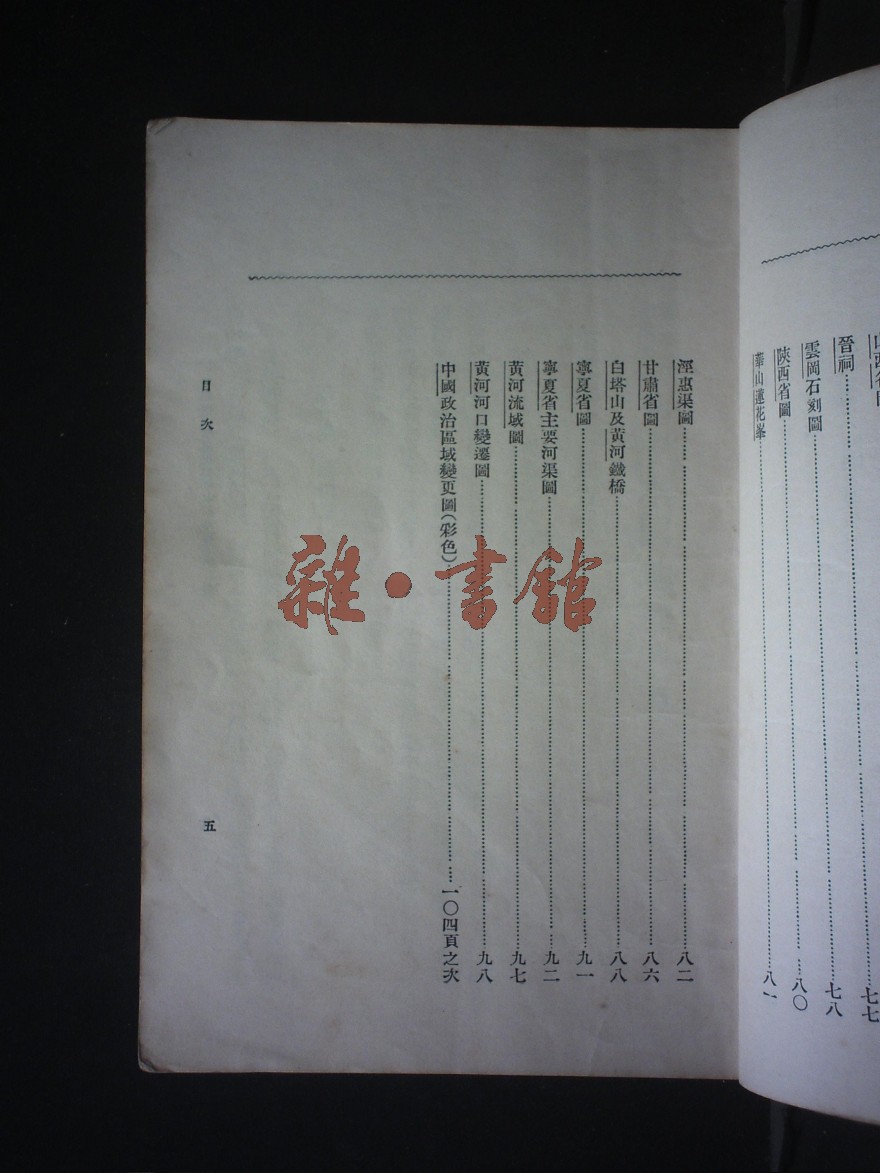 晉祠……七七
雲岡石刻圖……七八
陝西省圖……八〇
華山蓮花峯……八一
涇惠渠圖……八二
甘肅省圖……八六
白塔山及黃河鐵橋……八八
寧夏省圖……九一
寧夏省主要河渠圖……九二
黃河流域圖……九七
黃河河口變遷圖……九八
中國政治區域變更圖(彩色)……一〇四頁之次
目次
五
雜·書館